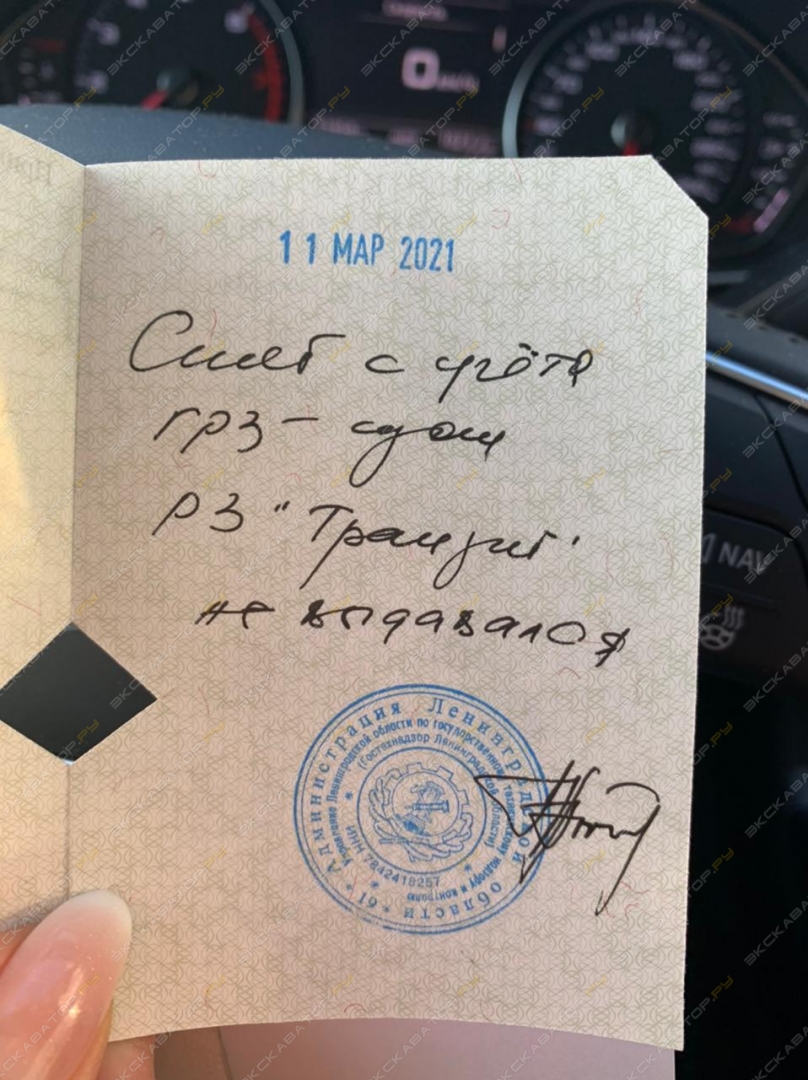 11 МАР 2021
Снят с учёта
ГРЗ - сдан
РЗ "Транзит"
не выдавался
Администрация Ленинградской области * 61 *
Управление Ленинградской области по государственному техническому надзору и контролю
(Гостехнадзор Ленинградской области)
ИНН 7842419257
0 км/ч
NAV
ЭКСКАВАТОР.РУ